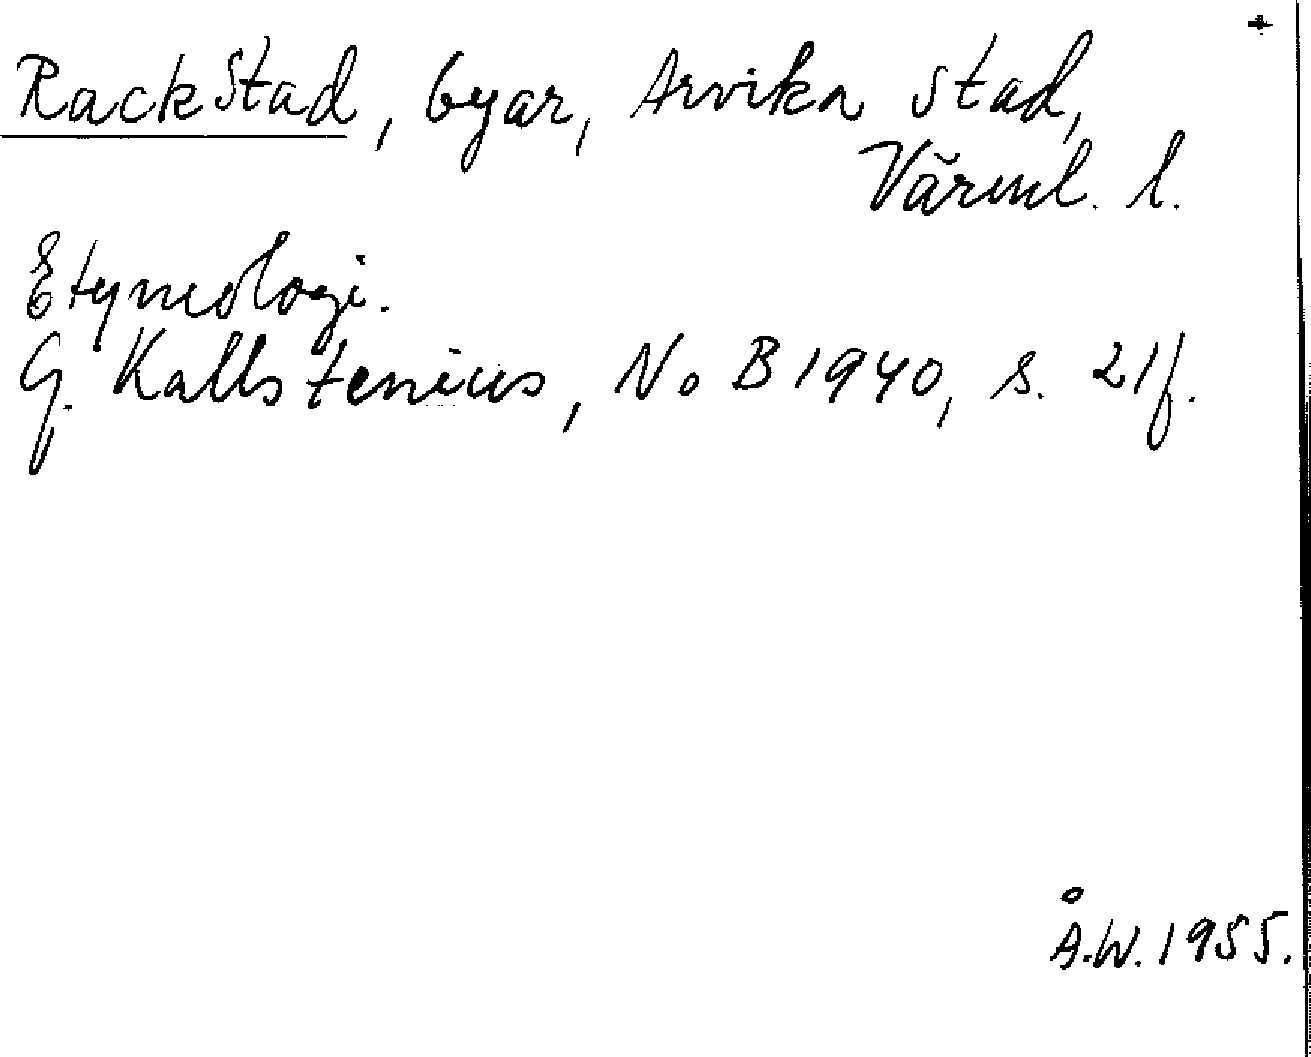 +
Rackstad, byar, Arvika stad,
Värml. l.
Etymologi.
G. Kallstenius, NoB 1940, s. 21f.
Å.W. 1955.